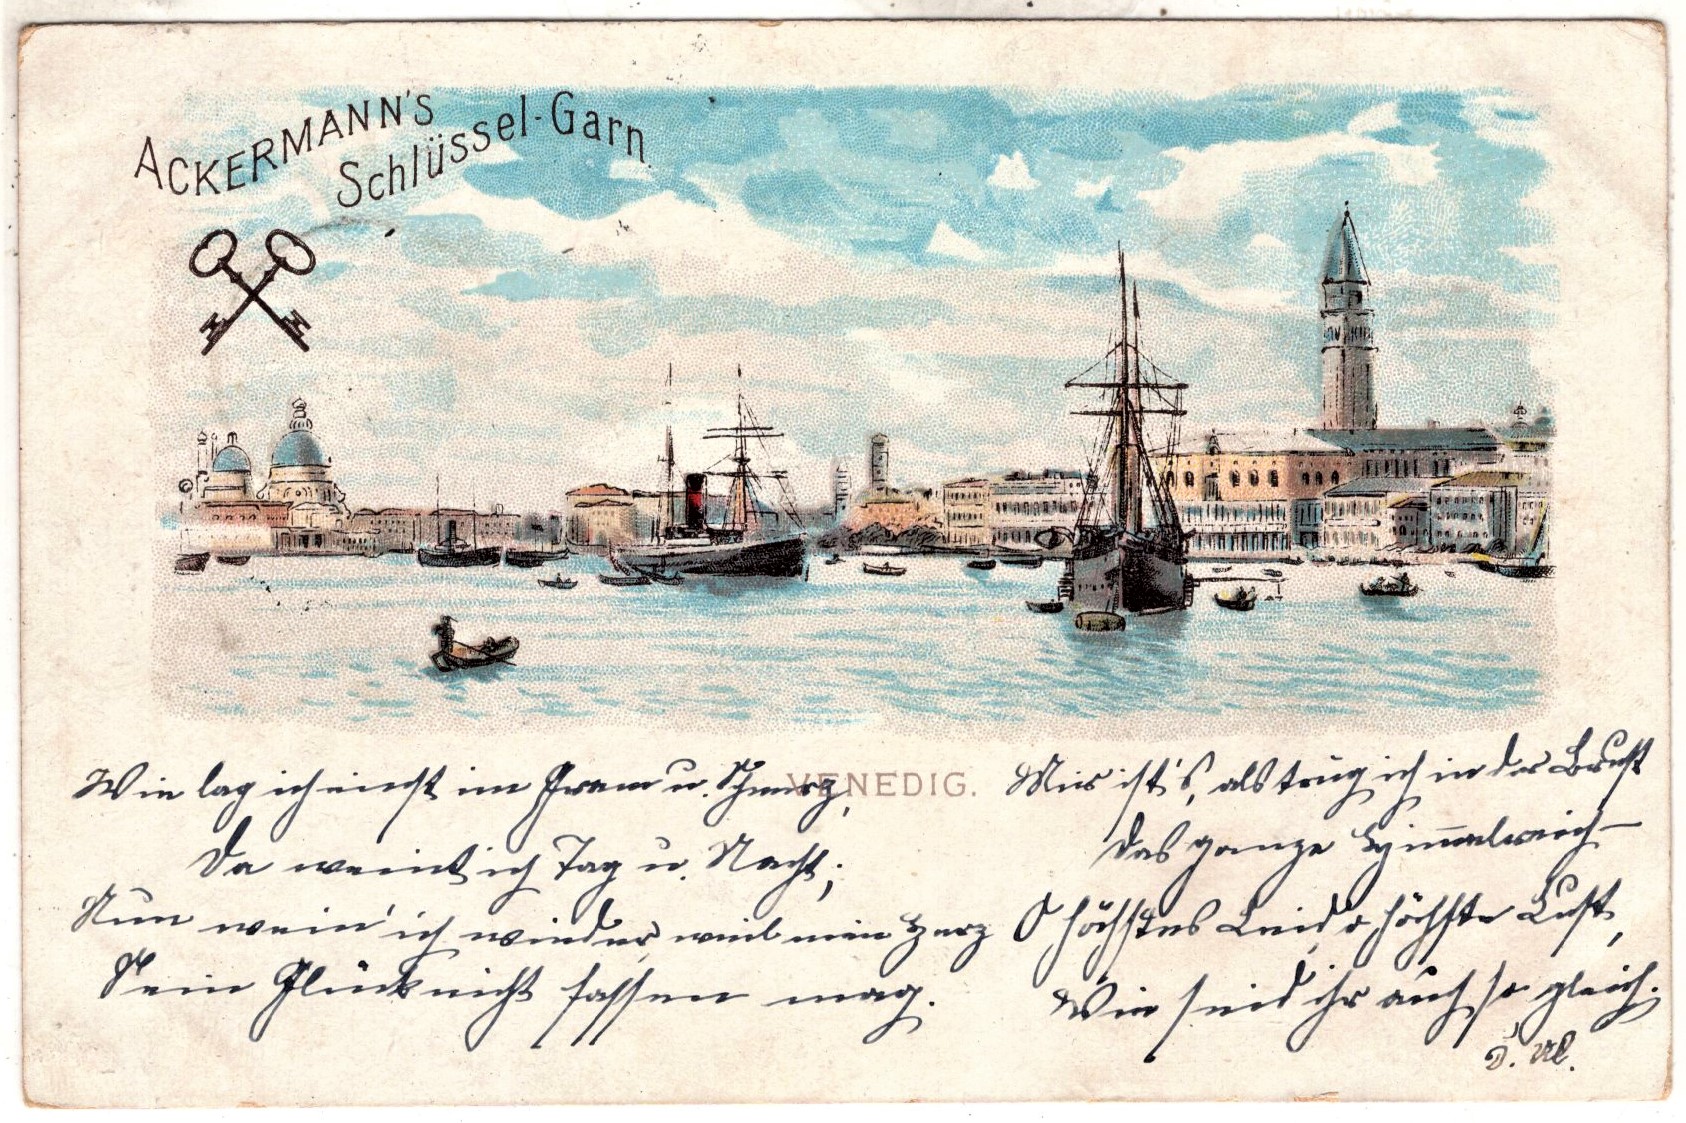 ACKERMANN'S
Schlüssel-Garn.
VENEDIG.
Wie lag ich einst im Gram u. Schmerz,
Da weint ich Tag u. Nacht;
Nun wein' ich wieder, weil mein Herz
Sein Glück nicht fassen mag.
Mir ist's, als trüg ich in der Brust
Das ganze Himmelreich –
O höchstes Leid, o höchste Lust,
Wie seid ihr auch so gleich.